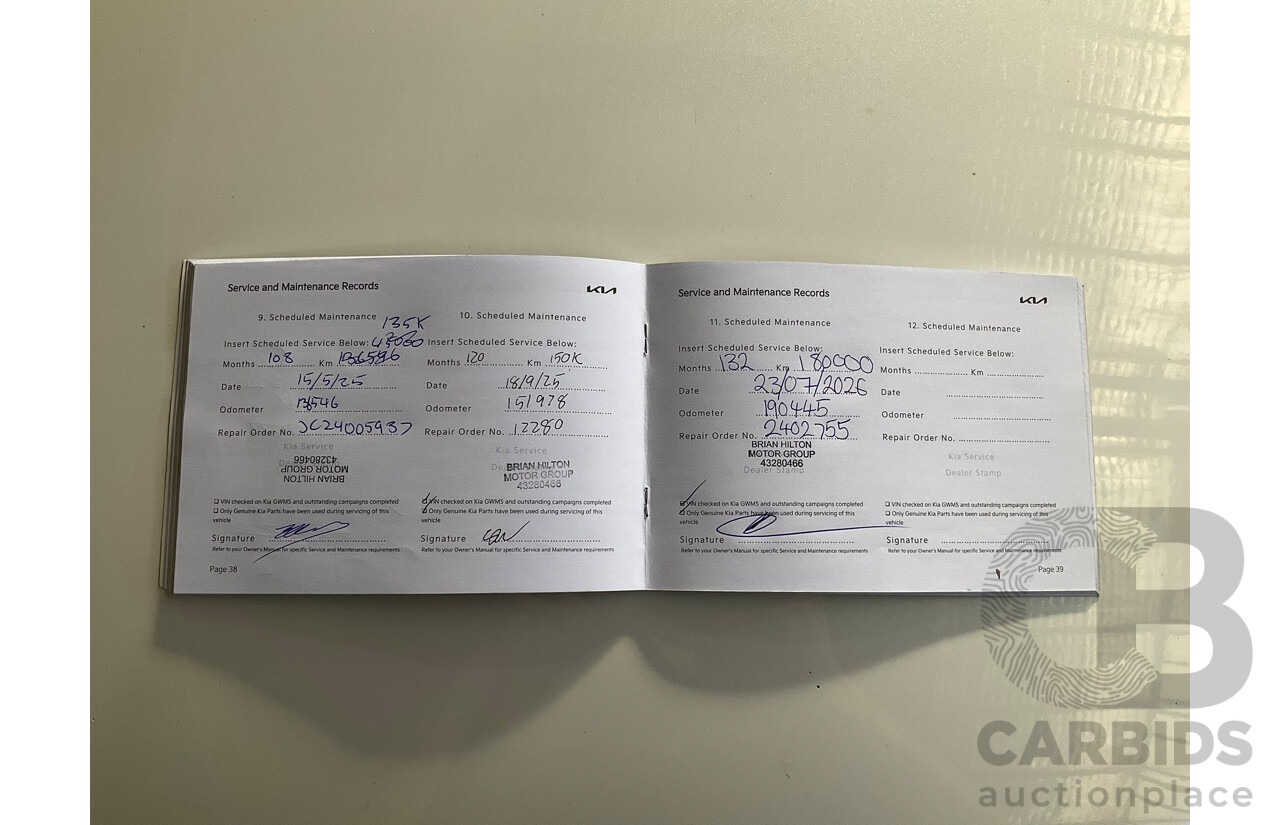 Service and Maintenance Records
KIA
9. Scheduled Maintenance
135K
Insert Scheduled Service Below:
Months 108 Km
Date 15/5/25
Odometer
Repair Order No. JC24005937
Kia Service
BRIAN HILTON
MOTOR GROUP
43280466
☐ VIN checked on Kia GWMS and outstanding campaigns completed
☐ Only Genuine Kia Parts have been used during servicing of this
vehicle
Signature
Refer to your Owner's Manual for specific Service and Maintenance requirements
Page 38
10. Scheduled Maintenance
Insert Scheduled Service Below:
Months 120 Km 150K
Date 18/9/25
Odometer 151978
Repair Order No. 12280
Kia Service
BRIAN HILTON
MOTOR GROUP
43280466
VIN checked on Kia GWMS and outstanding campaigns completed
Only Genuine Kia Parts have been used during servicing of this
vehicle
Signature
Refer to your Owner's Manual for specific Service and Maintenance requirements
Service and Maintenance Records
KIA
11. Scheduled Maintenance
Insert Scheduled Service Below:
Months 132 Km 180000
Date 23/07/2026
Odometer 190445
Repair Order No. 2402755
BRIAN HILTON
MOTOR GROUP
43280466
Dealer Stamp
VIN checked on Kia GWMS and outstanding campaigns completed
Only Genuine Kia Parts have been used during servicing of this
vehicle
Signature
Refer to your Owner's Manual for specific Service and Maintenance requirements
12. Scheduled Maintenance
Insert Scheduled Service Below:
Months Km
Date
Odometer
Repair Order No.
Kia Service
Dealer Stamp
☐ VIN checked on Kia GWMS and outstanding campaigns completed
☐ Only Genuine Kia Parts have been used during servicing of this
vehicle
Signature
Refer to your Owner's Manual for specific Service and Maintenance requirements
Page 39
CARBIDS
auctionplace